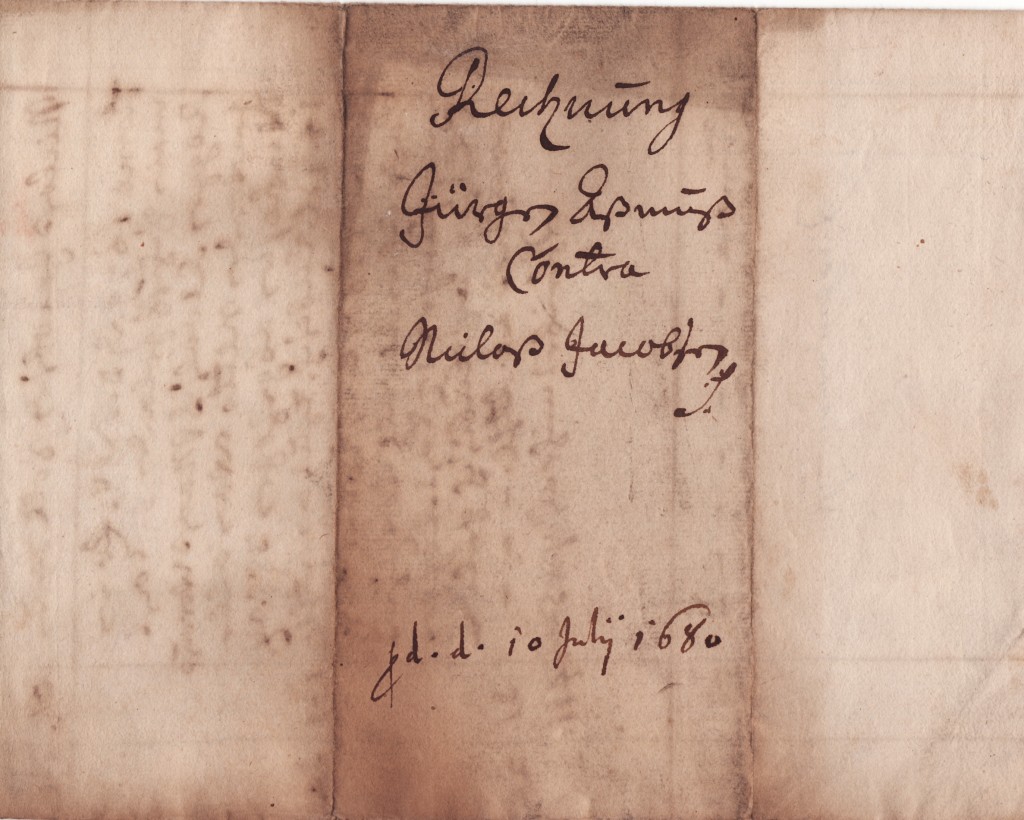 Rechnung
Jürgen Aßmuß
Contra
Niclaß Jacobsen
d. d. 10 Julij 1680